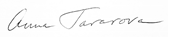 Anna Tararova